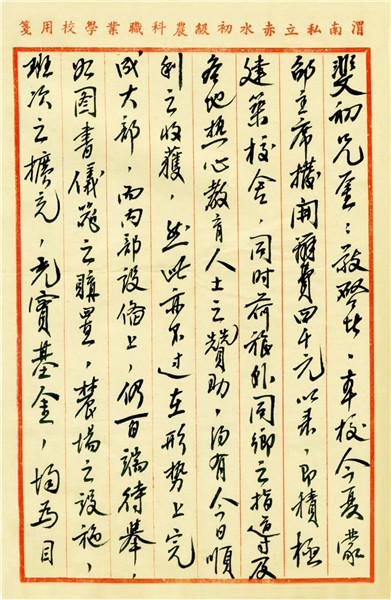 渭南私立赤水初級農科職業學校用箋
斐初兄鉴：敬啓者，本校今夏蒙
邵主席撥開辦費四千元以來，即積極
建築校舍，同時荷旅外同鄉之指導及
各地热心教育人士之贊助，有今日順
利之收獲，然此亦不过在形勢上完
成大部，而内部設俻上，仍百端待舉，
如图書儀器之購置，農場之設施，
班次之擴充，充實基金，均為目